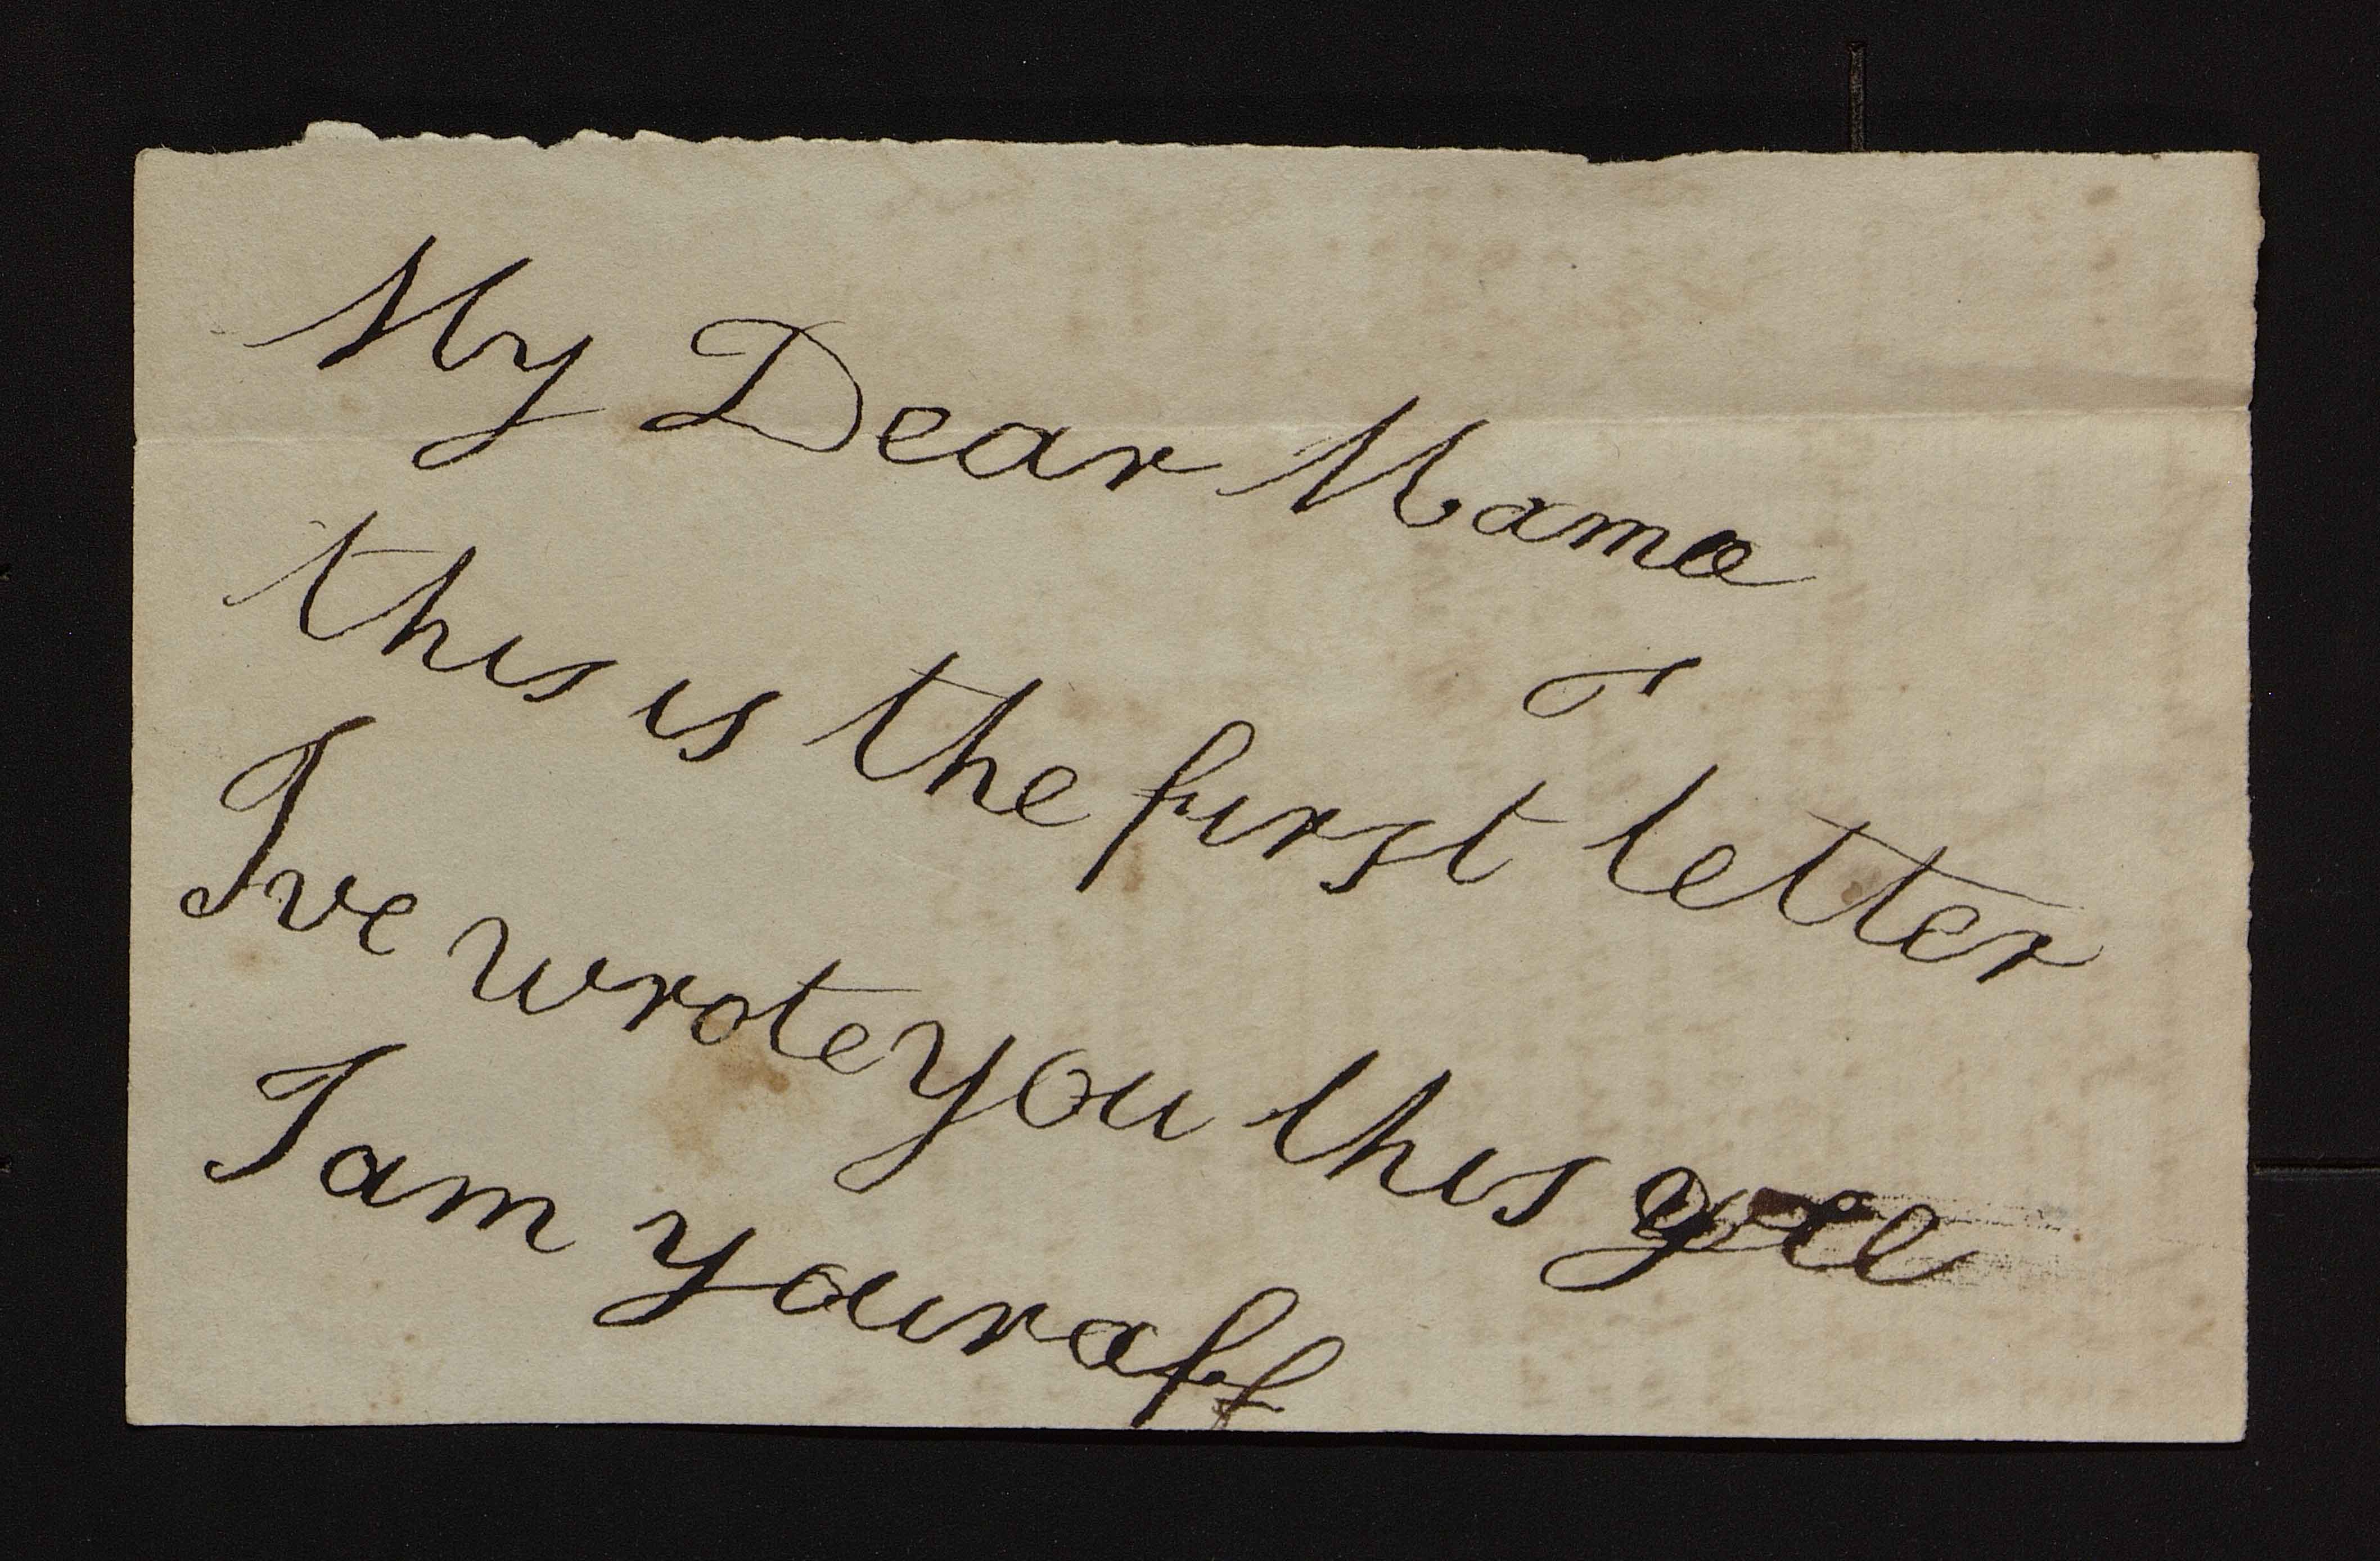 My Dear Mama
this is the first letter
Ive wrote you this
I am your aff